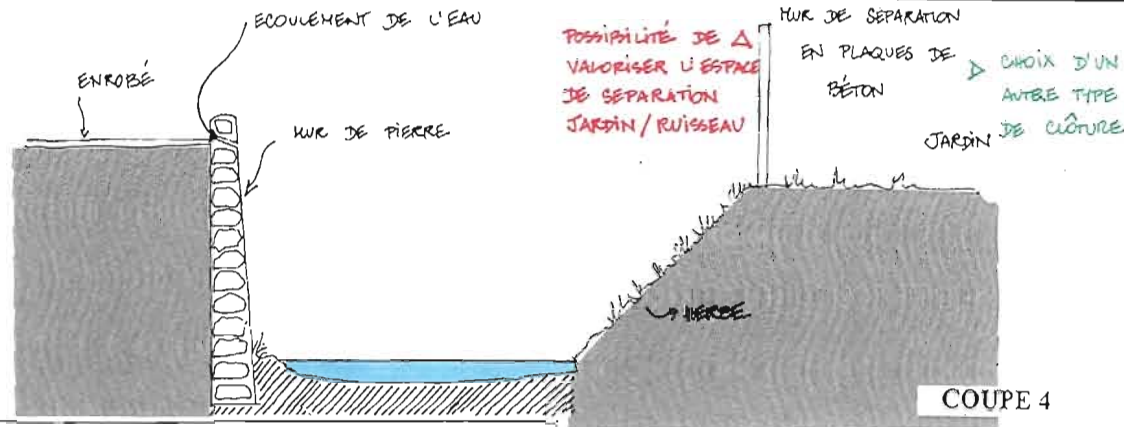 ECOULEMENT DE L'EAU
ENROBÉ
MUR DE PIERRE
POSSIBILITÉ DE Δ
VALORISER L'ESPACE
DE SEPARATION
JARDIN / RUISSEAU
MUR DE SEPARATION
EN PLAQUES DE
BÉTON
▷ CHOIX D'UN
AUTRE TYPE
DE CLÔTURE
JARDIN
HERBE
COUPE 4